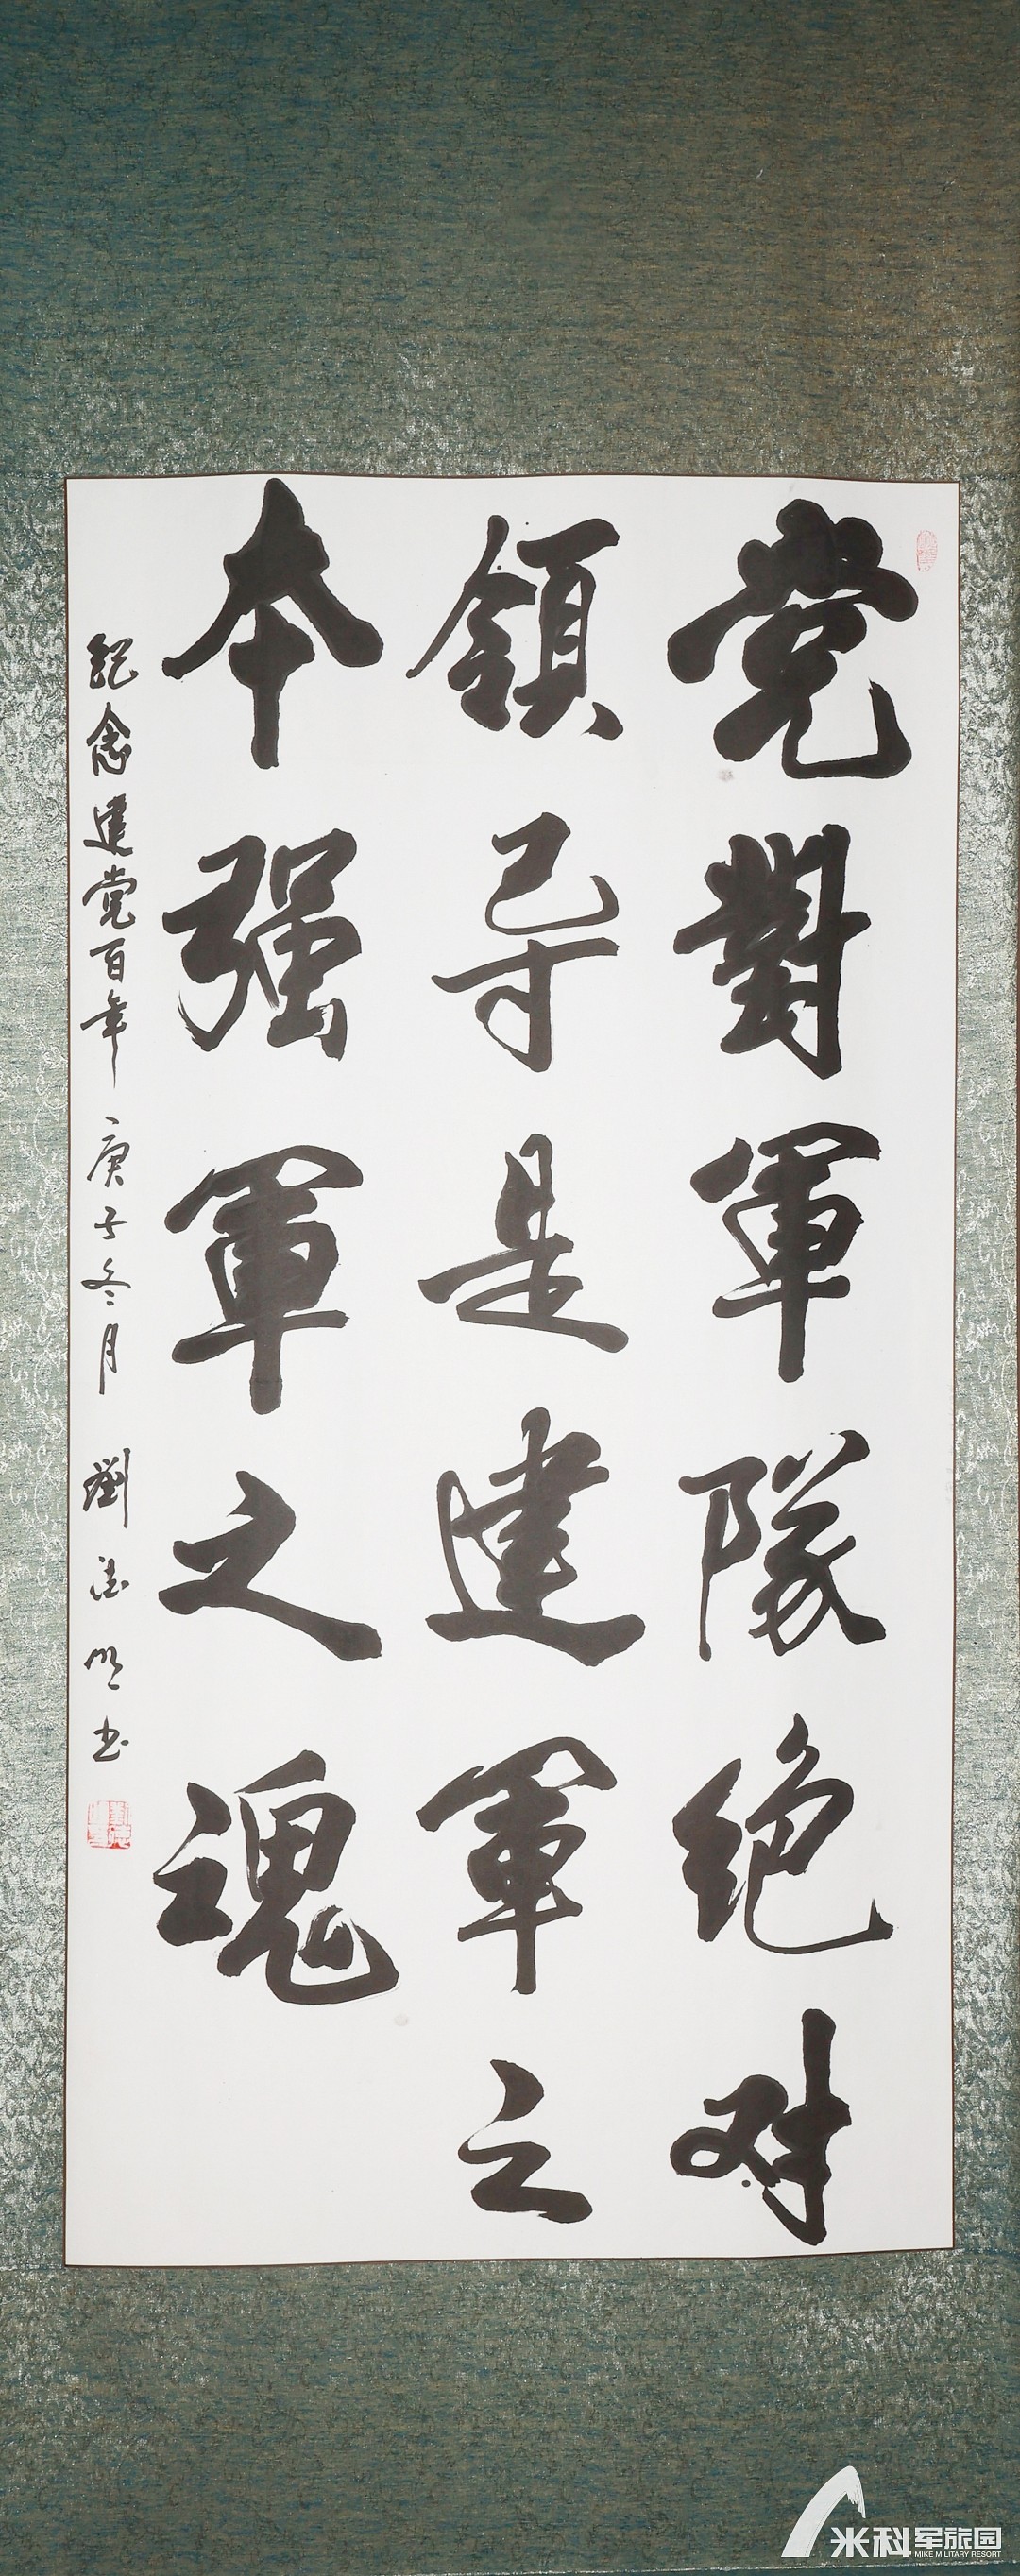 党對軍隊绝对
領导是建軍之
本强軍之魂
紀念建党百年 庚子冬月 劉法明书
米科军旅园
MIKE MILITARY RESORT